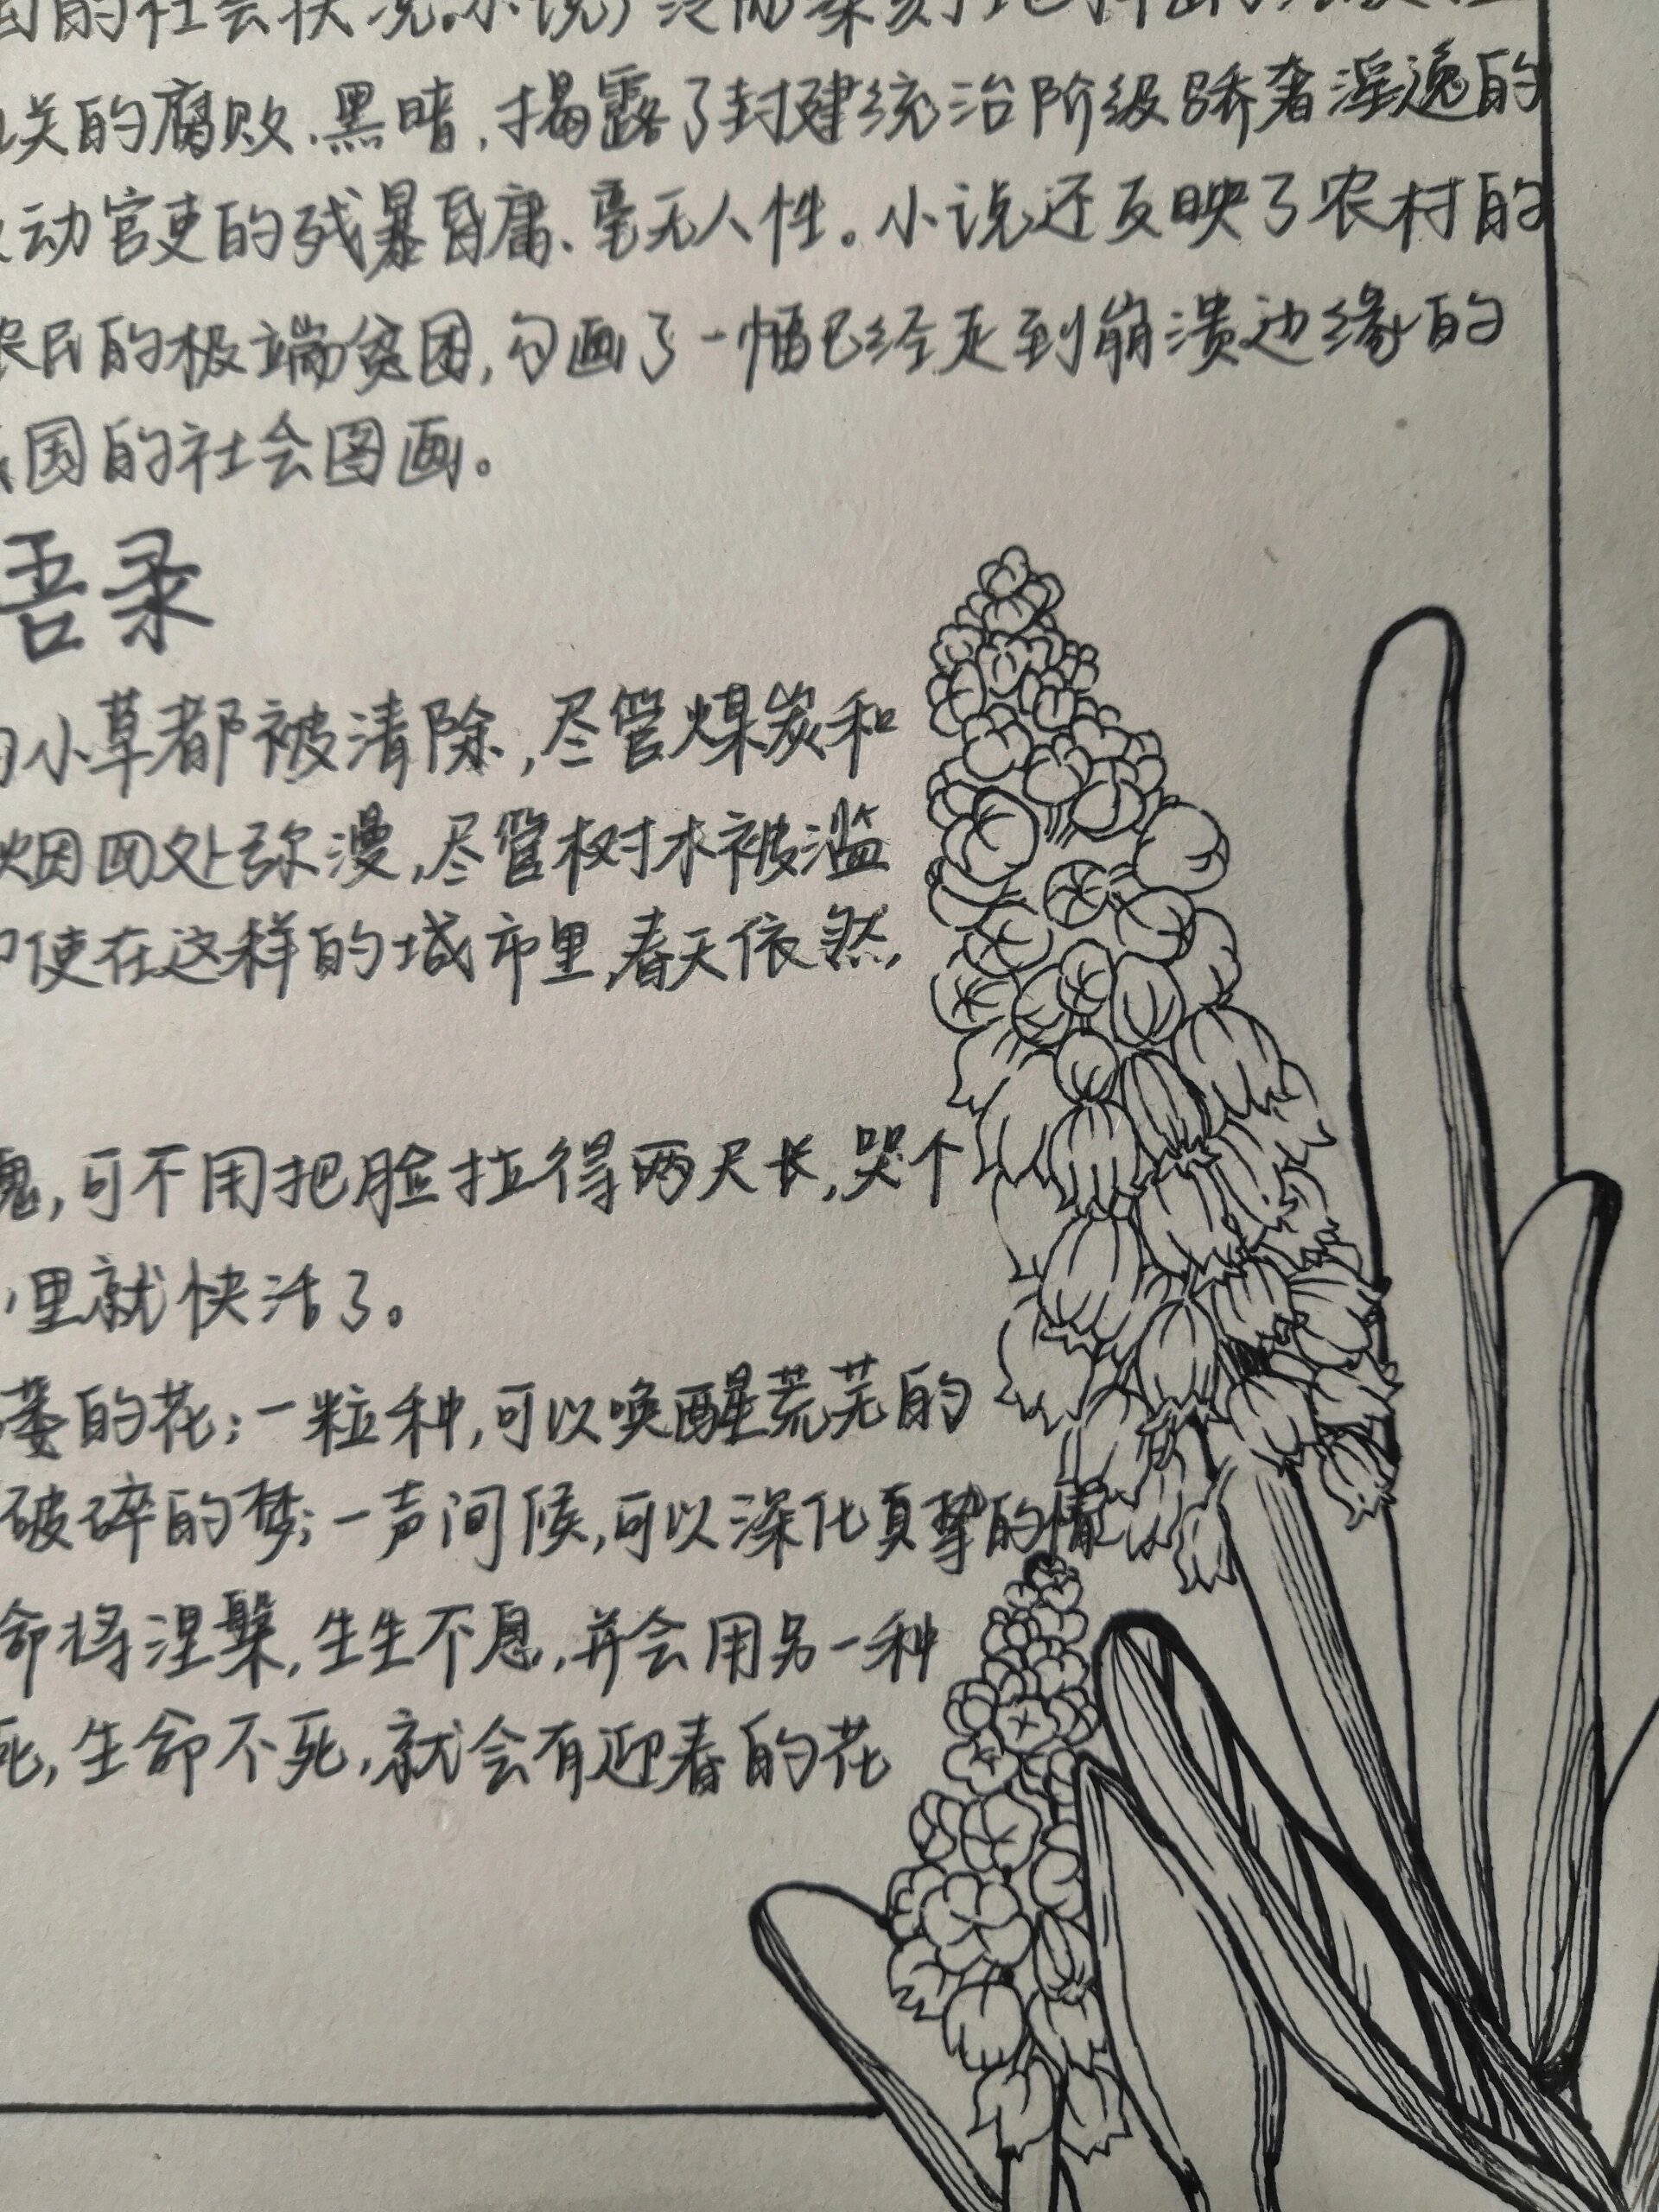 的社会状况。小说广泛而深刻地
关的腐败、黑暗,揭露了封建统治阶级骄奢淫逸的
动官吏的残暴昏庸、毫无人性。小说还反映了农村的
农民的极端贫困,勾画了一幅已经走到崩溃边缘的
国的社会图画。
语录
小草都被清除,尽管煤炭和
烟四处弥漫,尽管树木被滥
使在这样的城市里,春天依然,
,可不用把脸拉得两尺长,哭个
里就快活了。
萎的花;一粒种,可以唤醒荒芜的
破碎的梦;一声问候,可以深化真挚的情
命将涅槃,生生不息,并会用另一种
死,生命不死,就会有迎春的花